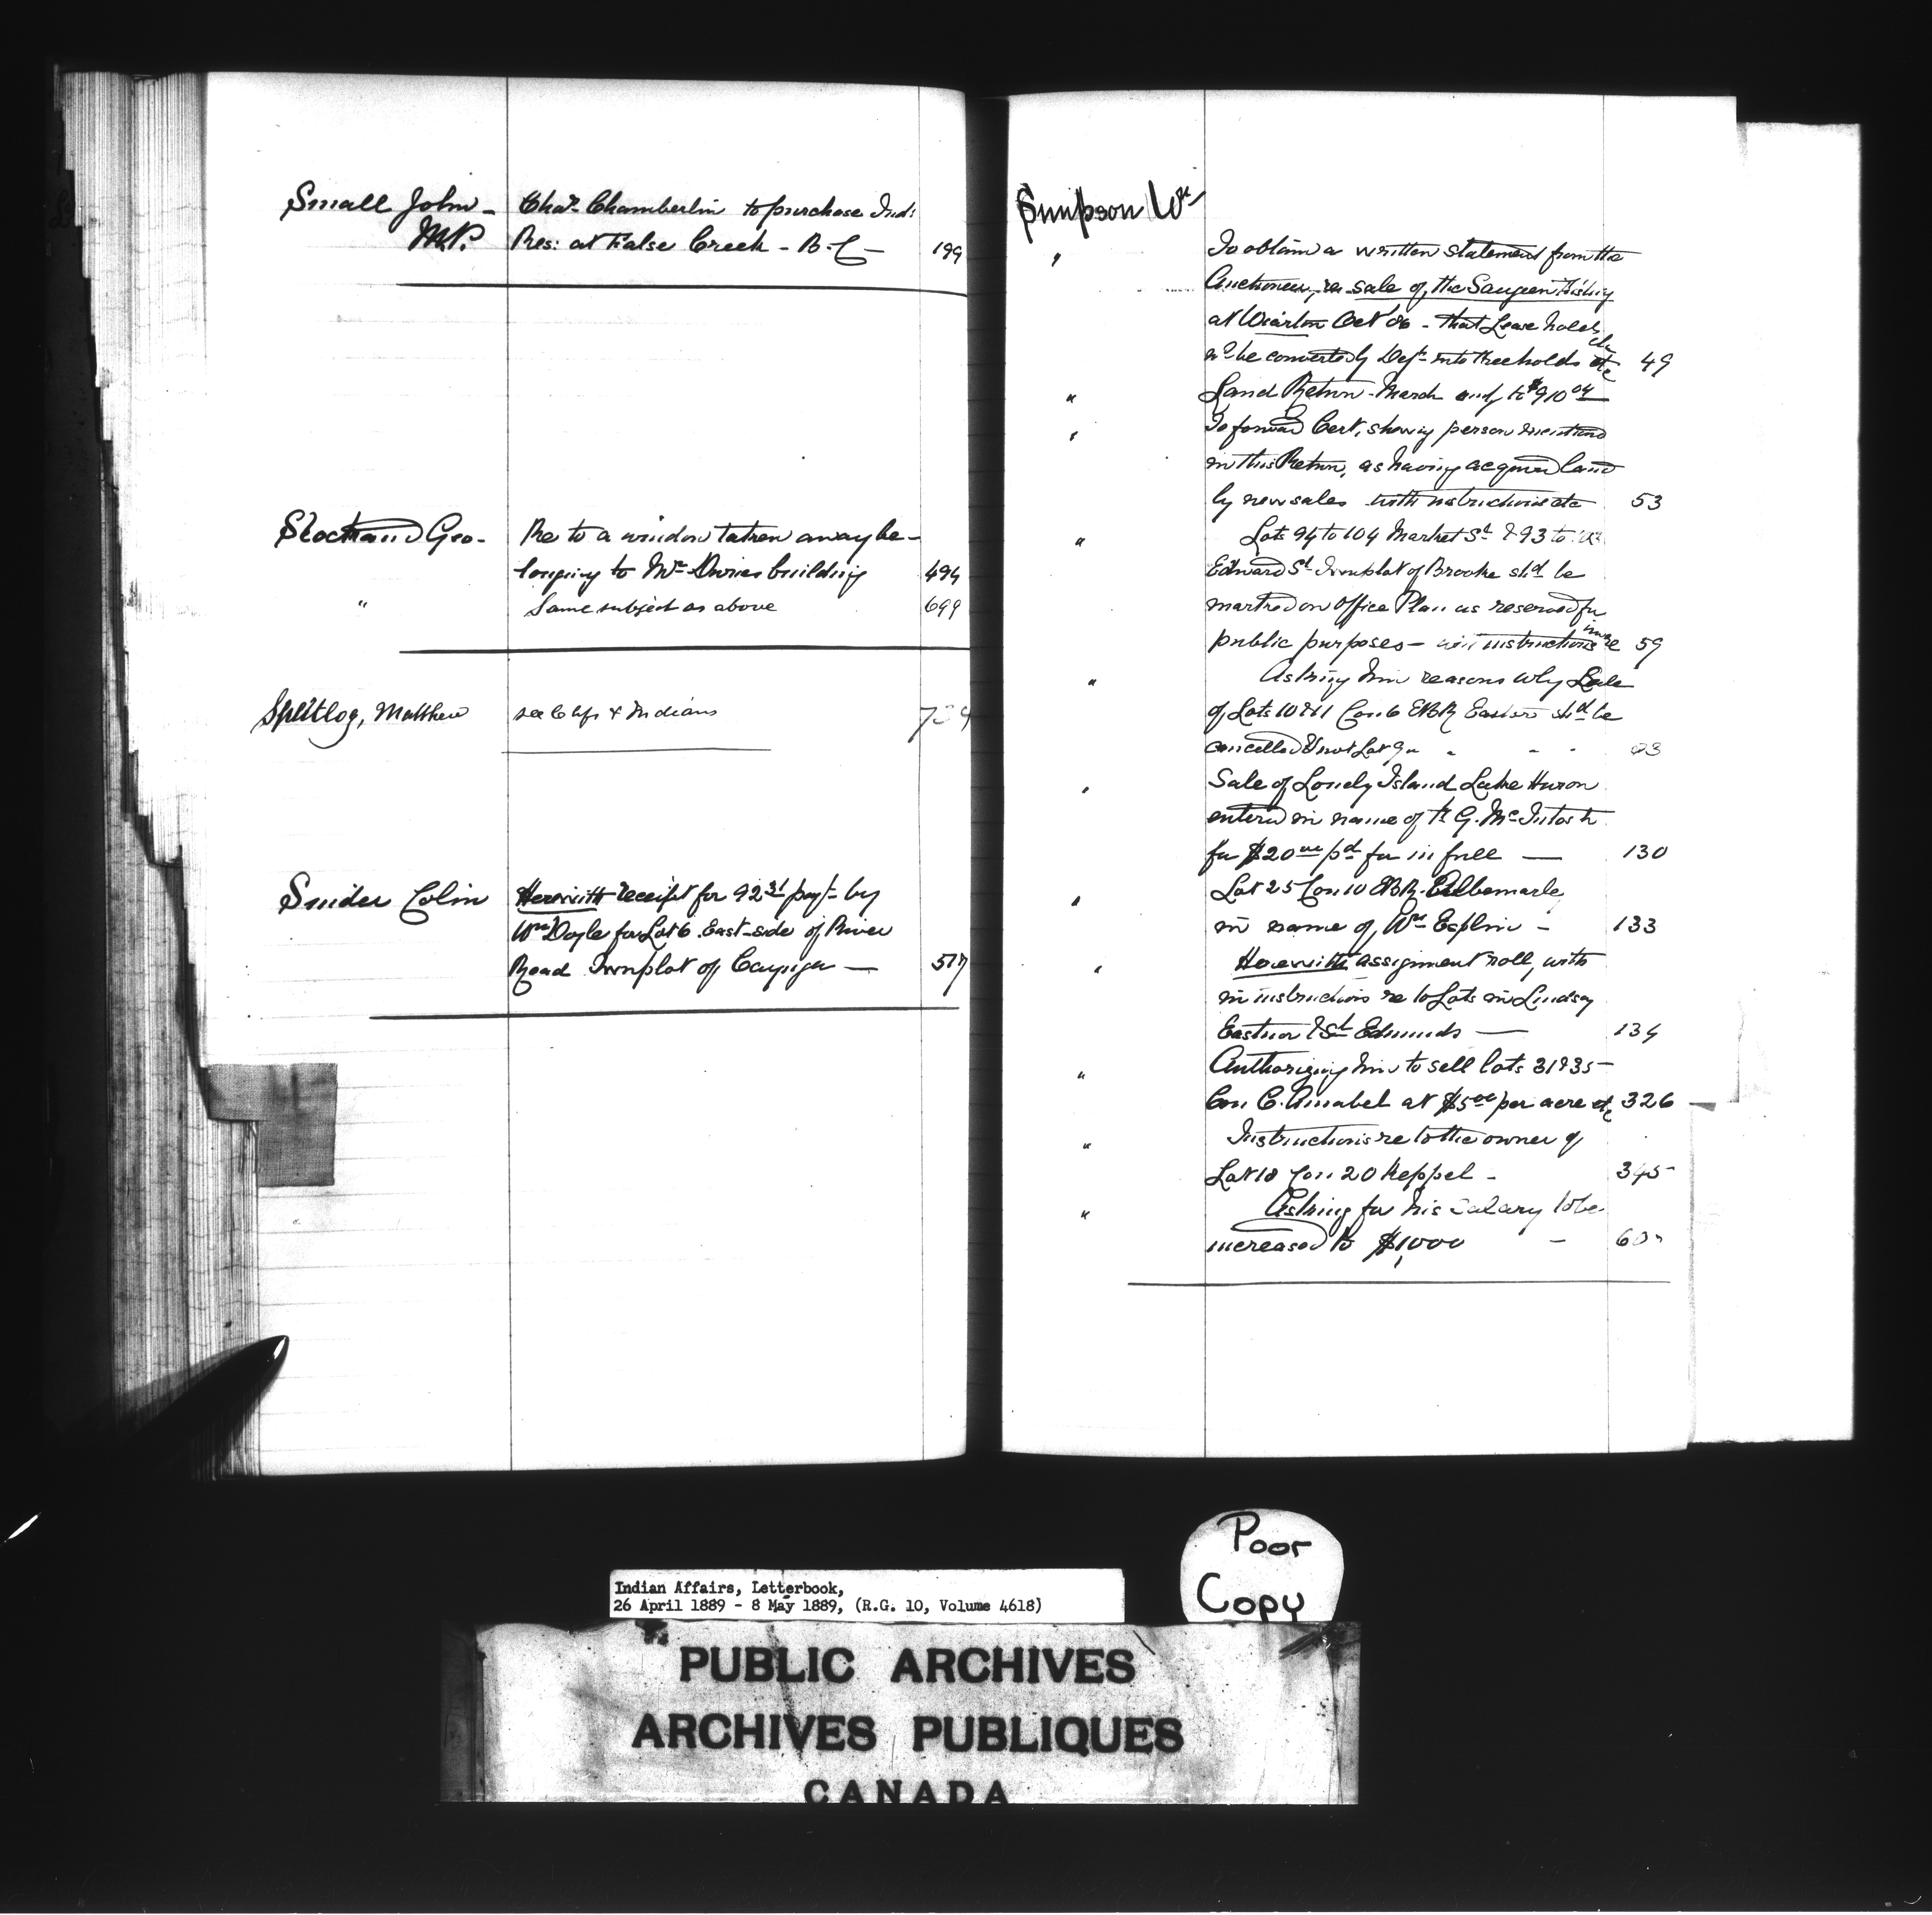 Small John - Chas. Chamberlin to purchase Ind:
M.P. Res: at False Creek - B.C - 199
Stockand Geo. Re to a window taken away be-
longing to Mr. Davies building 494
" Same subject as above 699
Splitlog, Matthew see Chfs & Indians
Snider Colin Herewith receipt for 92 31 payt. by
Wm Doyle for Lot 6 East-side of River
Road Townplot of Cayuga — 517
Simpson Wm
" To obtain a written statement from the
Auctioneer, re sale of the Saugeen Fishing
at Wiarton Oct 86 - that Lease holds
wd be converted by Dept. into freeholds etc 49
" Land Return - March amtg to $910 04
" To forward Cert. showing person mentioned
in this Return, as having acquired land
by new sales with instructions etc 53
" Lots 94 to 104 Market St & 93 to
Edward St Townplot of Brooke shd be
marked on Office Plan as reserved for
public purposes - with instructions 59
" Asking him reasons why Sale
of Lots 10 & 11 Con 6 EBR Eastnor shd be
cancelled & not Lot 9 " " " "
" Sale of Lonely Island Lake Huron
entered in name of G. McIntosh
for $20 00 pd for in full — 130
" Lot 25 Con 10 EBR. Albemarle
in name of Wm Esplin - 133
" Herewith assignment roll, with
in instructions re to Lots in Lindsay
Eastnor & St Edmunds — 134
" Authorizing him to sell lots 31 & 35 -
Con C. Amabel at $5 00 per acre etc 326
" Instructions re to the owner of
Lot 18 Con 20 Keppel - 345
" Asking for his Salary to be
increased to $1,000 -
Poor
Copy
Indian Affairs, Letterbook,
26 April 1889 - 8 May 1889, (R.G. 10, Volume 4618)
PUBLIC ARCHIVES
ARCHIVES PUBLIQUES
CANADA